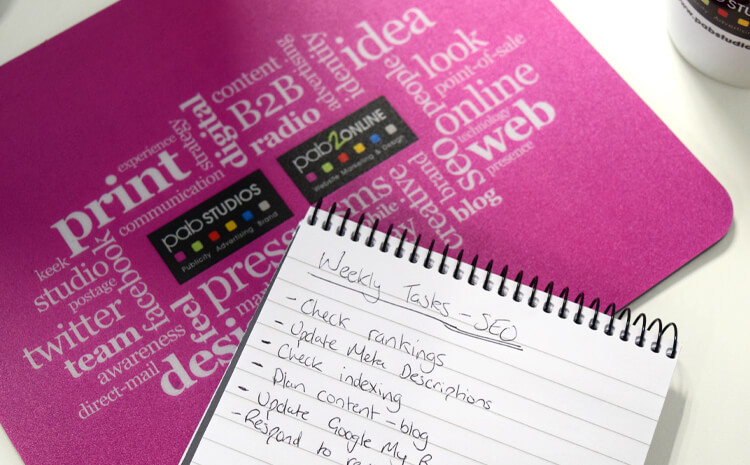 idea
look
point-of-sale
people
identity
advertising
marketing
content
B2B
radio
digital
strategy
experience
print
communication
online
technology
web
presence
SEO
brand
blog
creative
pab2ONLINE
Website Marketing & Design
pab STUDIOS
Publicity Advertising Brand
keek
studio
postage
facebook
twitter
team
awareness
direct-mail
feel
press
Weekly Tasks - SEO
- Check rankings
- Update Meta Descriptions
- Check indexing
- Plan content - blog
- Update Google My
- Respond to